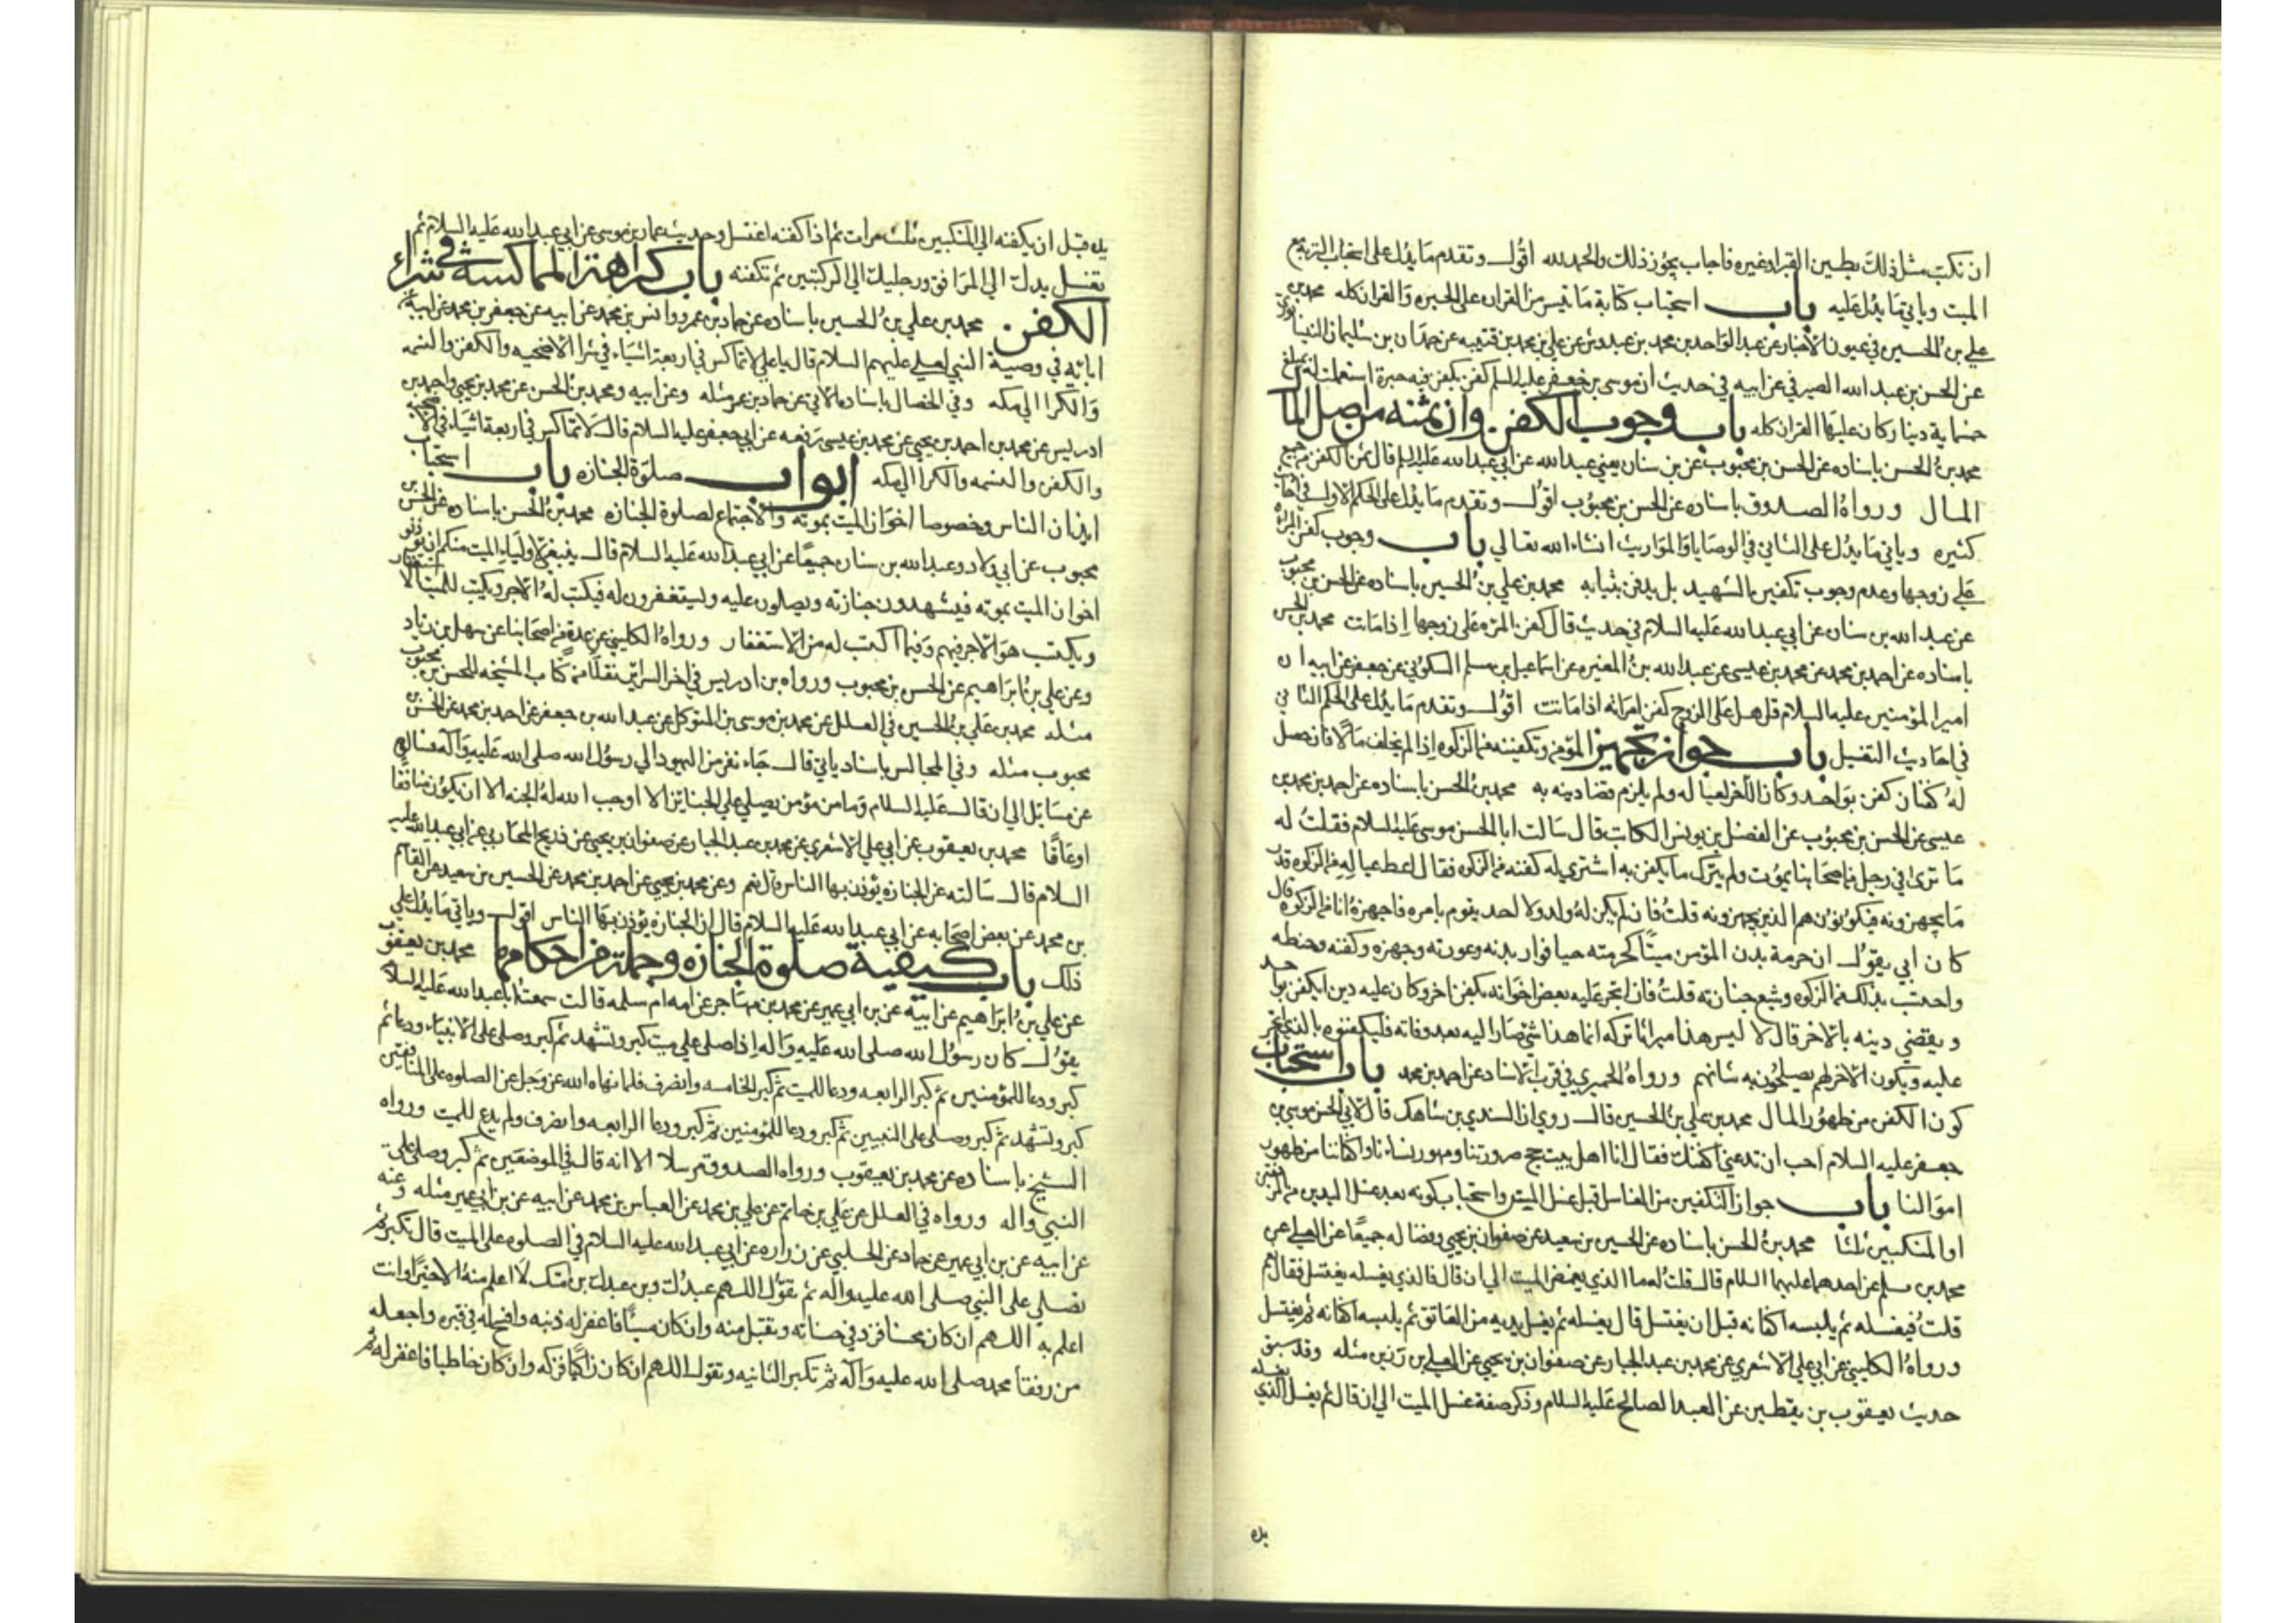 ان نكتب مثل ذلك بطين القبر او غيره فاجاب يجوز ذلك والحمد لله اقول وتقدم ما يدل على استحباب التربة مع
الميت وياتي ما يدل عليه باب استحباب كتابة ما تيسر من القران على الحبره والقران كله محمد بن
علي بن الحسين في عيون الاخبار عن عبد الواحد بن محمد بن عبدوس عن علي بن محمد بن قتيبه عن حمدان بن سليمان النيسابوري
عن الحسن بن عبد الله الصيرفي عن ابيه في حديث ان موسى بن جعفر عليه السلم كفن بكفن فيه حبرة استعملت له بمبلغ
خمسماية دينار كان عليها القران كله باب وجوب الكفن وان ثمنه من اصل المال
محمد بن الحسن باسناده عن الحسن بن محبوب عن بن سنان يعني عبد الله عن ابي عبد الله عليه السلم قال ثمن الكفن من جميع
المال ورواه الصدوق باسناده عن الحسن بن محبوب اقول وتقدم ما يدل على الحكم الاول في احاديث
كثيره وياتي ما يدل على الثاني في الوصايا والمواريث انشاء الله تعالي باب وجوب كفن المراه
على زوجها وعدم وجوب تكفين الشهيد بل يدفن بثيابه محمد بن علي بن الحسين باسناده عن الحسن بن محبوب
عن عبد الله بن سنان عن ابي عبد الله عليه السلام في حديث قال كفن المراه على زوجها اذا ماتت محمد بن الحسن
باسناده عن احمد بن محمد عن محمد بن عيسى عن عبد الله بن المغيره عن اسماعيل بن مسلم السكوني عن جعفر عن ابيه ان
امير المؤمنين عليه السلام قال على الزوج كفن امراته اذا ماتت اقول وتقدم ما يدل على الحكم الثاني
في احاديث التغسيل باب جواز تجهيز المؤمن وتكفينه من الزكوه اذا لم يخلف مالا فان حصل
له كفنان كفن بواحد وكان الآخر لعياله ولم يلزم قضا دينه به محمد بن الحسن باسناده عن احمد بن محمد بن
عيسى عن الحسن بن محبوب عن الفضل بن يونس الكاتب قال سالت ابا الحسن موسى عليه السلام فقلت له
ما ترى في رجل من اصحابنا يموت ولم يترك ما يكفن به اشتري له كفنه من الزكوه فقال اعط عياله من الزكوه قدر
ما يجهزونه فيكونون هم الذين يجهزونه قلت فان لم يكن له ولد ولا احد يقوم بامره فاجهزه انا من الزكوه قال
كان ابي يقول ان حرمة بدن المؤمن ميتا كحرمته حيا فوار بدنه وعورته وجهزه وكفنه وحنطه
واحتسب بذلك من الزكوه وشيع جنازته قلت فان اتجر عليه بعض اخوانه بكفن اخر وكان عليه دين ايكفن بواحد
ويقضي دينه بالاخر قال لا ليس هذا ميراثا تركه انما هذا شي صار اليه بعد وفاته فليكفنوه بالذي اتجر
عليه ويكون الاخر لهم يصلحون به شانهم ورواه الحميري في قرب الاسناد عن احمد بن محمد باب استحباب
كون الكفن من طهور المال محمد بن علي بن الحسين قال روي ان السندي بن شاهك قال لابي الحسن موسى بن
جعفر عليه السلام احب ان تدعني اكفنك فقال انا اهل بيت حج صرورتنا ومهور نساءنا واكفاننا من طهور
اموالنا باب جواز التكفين من الغاسل قبل غسل الميت واستحباب كونه بعد غسل اليدين من المرفقين
او المنكبين ثلثا محمد بن الحسن باسناده عن الحسين بن سعيد عن صفوان بن يحيى وفضاله جميعا عن العلى عن
محمد بن مسلم عن احدهما عليهما السلام قال قلت له ما الذي يغمض الميت الي ان قال فالذي يغسله يغتسل فقال نعم
قلت فيغسله ثم يلبسه اكفانه قبل ان يغتسل قال يغسله ثم يغسل يديه من العاتق ثم يلبسه اكفانه ثم يغتسل
ورواه الكليني عن ابي علي الاشعري عن محمد بن عبد الجبار عن صفوان بن يحيى عن العلى بن رزين مثله وقد سبق
حديث يعقوب بن يقطين عن العبد الصالح عليه السلام وذكر صفة غسل الميت الي ان قال ثم يغسل الذي يغسله
يده
يده قبل ان يكفنه الي المنكبين ثلث مرات ثم اذا كفنه اغتسل وحديث عمار بن موسى عن ابي عبد الله عليه السلام ثم
تغسل يدك الي المرافق ورجليك الي الركبتين ثم تكفنه باب كراهة المماكسة في شراء
الكفن محمد بن علي بن الحسين باسناده عن حماد بن عمرو وانس بن محمد عن ابيه عن جعفر بن محمد عن ابيه عن
ابائه في وصية النبي لعلي عليهم السلام قال يا علي لا تماكس في اربعة اشياء في شرا الاضحيه والكفن والنسمه
والكرا الي مكه وفي الخصال باسناده الاتي عن حماد بن عمر مثله وعن ابيه ومحمد بن الحسن عن محمد بن يحيى واحمد بن
ادريس عن محمد بن احمد بن يحيى عن محمد بن عيسى رفعه عن ابي جعفر عليه السلام قال لا تماكس في اربعة اشياء في الاضحيه
والكفن والنسمه والكرا الي مكه ابواب صلوة الجنازه باب استحباب
ايذان الناس وخصوصا اخوان الميت بموته والاجتماع لصلوة الجنازه محمد بن الحسن باسناده عن الحسن بن
محبوب عن ابي ولاد وعبد الله بن سنان جميعا عن ابي عبد الله عليه السلام قال ينبغي لاولياء الميت منكم ان يؤذنوا
اخوان الميت بموته فيشهدون جنازته ويصلون عليه ويستغفرون له فيكتب لهم الاجر ويكتب للميت الاستغفار
ويكتسب هو الاجر فيهم وفيما اكتسب له من الاستغفار ورواه الكليني عن عدة من اصحابنا عن سهل بن زياد
وعن علي بن ابراهيم عن الحسن بن محبوب ورواه بن ادريس في اخر السرائر نقلا من كتاب المشيخه للحسن بن محبوب
مثله محمد بن علي بن الحسين في العلل عن محمد بن موسى بن المتوكل عن عبد الله بن جعفر عن احمد بن محمد عن الحسن بن
محبوب مثله وفي المجالس باسناد ياتي قال جاء نفر من اليهود الي رسول الله صلى الله عليه وآله فسالوه
عن مسايل الي ان قال عليه السلام وما من مؤمن يصلي على الجنايز الا اوجب الله له الجنه الا ان يكون منافقا
او عاقا محمد بن يعقوب عن ابي علي الاشعري عن محمد بن عبد الجبار عن صفوان بن يحيى عن ذريح المحاربي عن ابي عبد الله عليه
السلام قال سالته عن الجنازه يؤذن بها الناس قال نعم وعن محمد بن يحيى عن احمد بن محمد عن الحسين بن سعيد عن القاسم
بن محمد عن بعض اصحابه عن ابي عبد الله عليه السلام قال ان الجنازه يؤذن بها الناس اقول وياتي ما يدل على
ذلك باب كيفية صلوة الجنازه وجملة من احكامها محمد بن يعقوب
عن علي بن ابراهيم عن ابيه عن بن ابي عمير عن محمد بن مهاجر عن امه ام سلمه قالت سمعت ابا عبد الله عليه السلام
يقول كان رسول الله صلى الله عليه وآله اذا صلى على ميت كبر وتشهد ثم كبر وصلى على الانبياء ودعا ثم
كبر ودعا للمؤمنين ثم كبر الرابعه ودعا للميت ثم كبر الخامسه وانصرف فلما نهاه الله عز وجل عن الصلوه على المنافقين
كبر وتشهد ثم كبر وصلى على النبيين ثم كبر ودعا للمؤمنين ثم كبر ودعا الرابعه وانصرف ولم يدع للميت ورواه
الشيخ باسناده عن محمد بن يعقوب ورواه الصدوق مرسلا الا انه قال في الموضعين ثم كبر وصلى على
النبي واله ورواه في العلل عن علي بن حاتم عن علي بن محمد عن العباس بن محمد عن ابيه عن بن ابي عمير مثله وعنه
عن ابيه عن بن ابي عمير عن حماد عن الحلبي عن زراره عن ابي عبد الله عليه السلام في الصلوه على الميت قال تكبر ثم
تصلي على النبي صلى الله عليه واله ثم تقول اللهم عبدك وبن عبدك بن امتك لا اعلم منه الا خيرا وانت
اعلم به اللهم ان كان محسنا فزد في حسناته وتقبل منه وان كان مسيئا فاغفر له ذنبه وافسح له في قبره واجعله
من رفقاء محمد صلى الله عليه وآله ثم تكبر الثانيه وتقول اللهم ان كان زاكيا فزكه وان كان خاطيا فاغفر له ثم